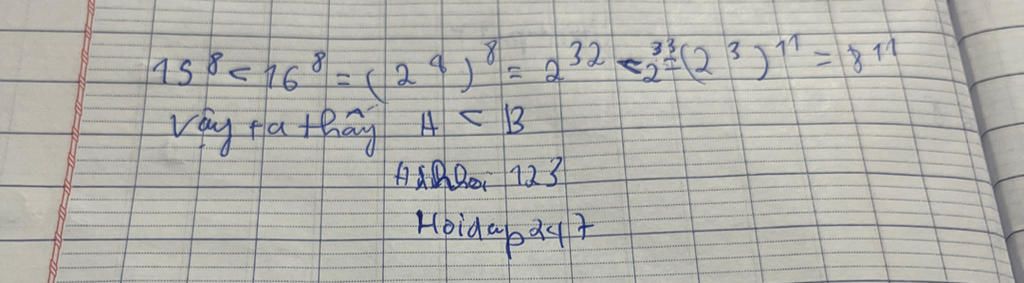 15⁸ < 16⁸ = (2⁴)⁸ = 2³² < 2³³ = (2³)¹¹ = 8¹¹
Vậy ta thấy A < B
123
Hoidap247